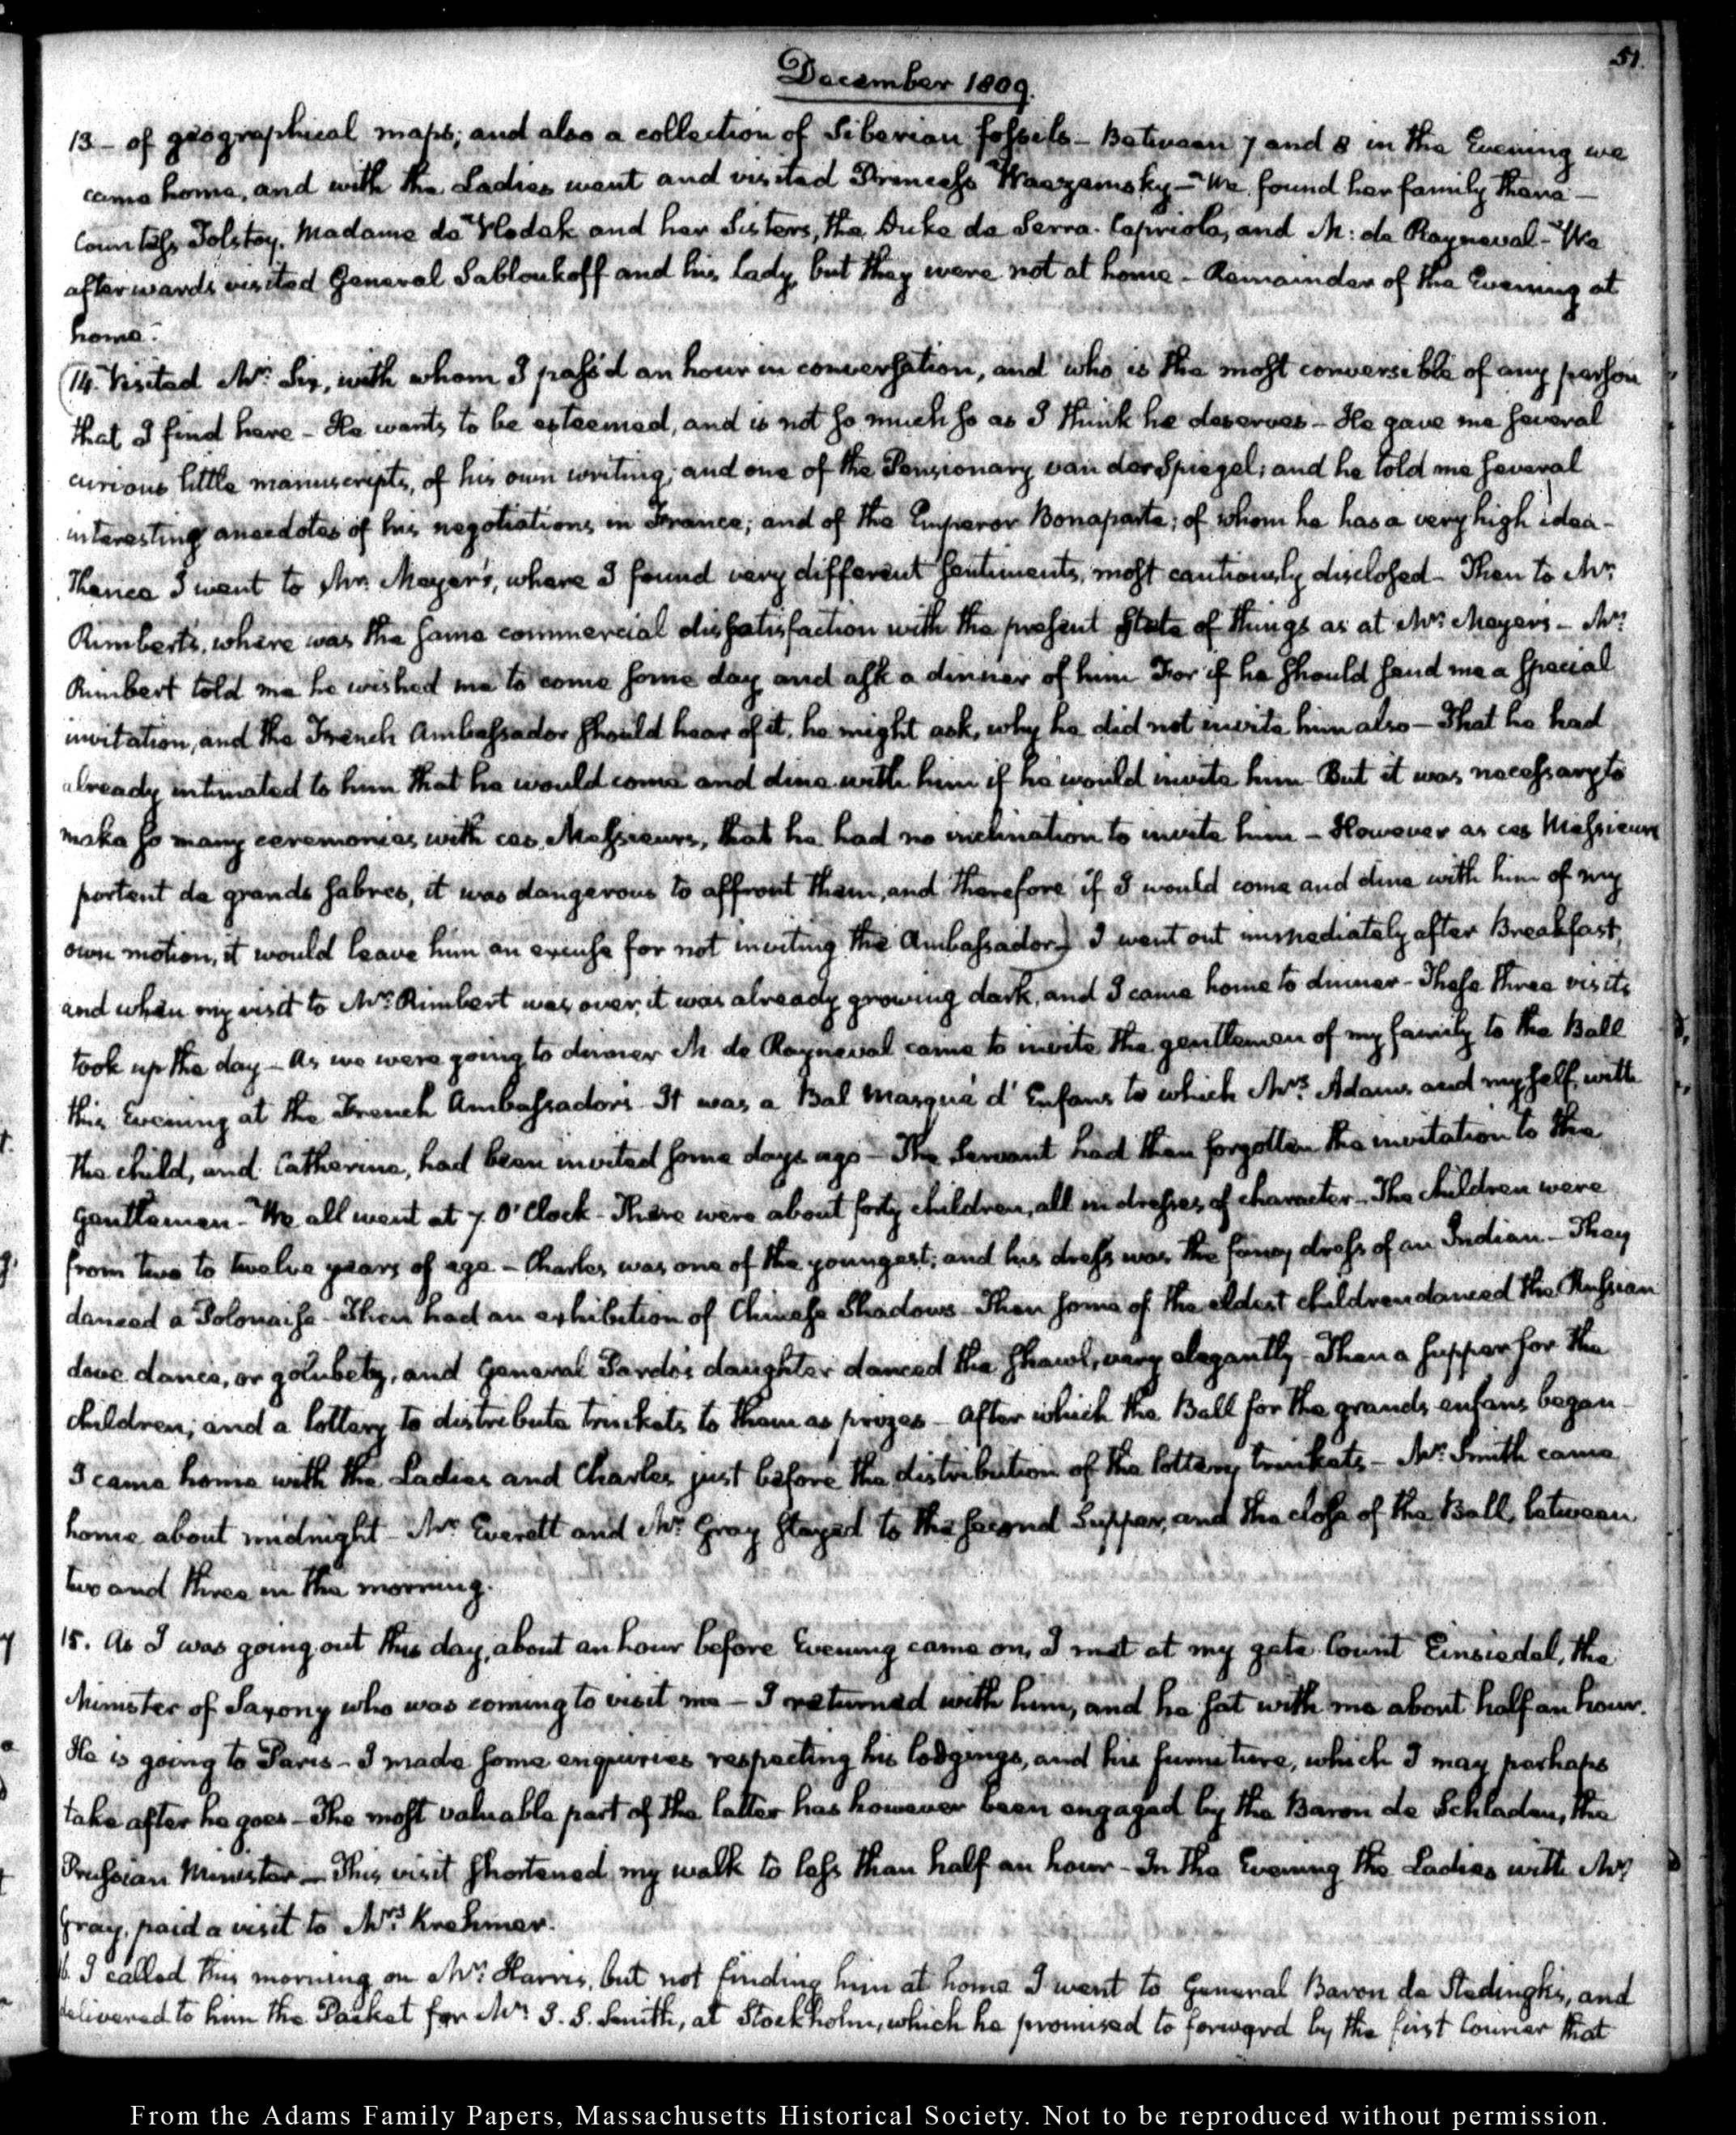 51.
December 1809.
13 - of geographical maps; and also a collection of Siberian fossils - Between 7 and 8 in the Evening we
came home, and with the Ladies went and visited Princess Waazemsky - We found her family there -
Countess Tolstoy, Madame de Vlodek and her Sisters, the Duke de Serra-Capriola, and M: de Rayneval - We
afterwards visited General Sabloukoff and his lady, but they were not at home - Remainder of the Evening at
home.
14. Visited Mr: Six, with whom I pass'd an hour in conversation, and who is the most conversible of any person
that I find here - He wants to be esteemed, and is not so much so as I think he deserves - He gave me several
curious little manuscripts, of his own writing; and one of the Pensionary van der Spiegel; and he told me several
interesting anecdotes of his negotiations in France; and of the Emperor Bonaparte; of whom he has a very high idea -
Thence I went to Mr. Meyer's, where I found very different sentiments, most cautiously disclosed - Then to Mr:
Rimbert's, where was the same commercial dissatisfaction with the present state of things as at Mr: Meyer's - Mr:
Rimbert told me he wished me to come some day and ask a dinner of him For if he should send me a special
invitation, and the French Ambassador should hear of it, he might ask, why he did not invite him also - That he had
already intimated to him that he would come and dine with him if he would invite him - But it was necessary to
make so many ceremonies with ces Messieurs, that he had no inclination to invite him - However as ces Messieurs
portent de grands sabres, it was dangerous to affront them, and therefore if I would come and dine with him of my
own motion, it would leave him an excuse for not inviting the Ambassador) I went out immediately after Breakfast,
and when my visit to Mr: Rimbert was over, it was already growing dark, and I came home to dinner - These three visits
took up the day - As we were going to dinner M de Rayneval came to invite the gentlemen of my family to the Ball
this Evening at the French Ambassador's - It was a Bal Masqué d'Enfans to which Mrs: Adams and myself, with
the child, and Catherine, had been invited some days ago - The Servant had then forgotten the invitation to the
Gentlemen - We all went at 7 O'Clock - There were about forty children, all in dresses of character - The children were
from two to twelve years of age - Charles was one of the youngest; and his dress was the fancy dress of an Indian - They
danced a Polonaise - Then had an exhibition of Chinese Shadows - Then some of the eldest children danced the Russian
dove dance, or golubetz, and General Pardo's daughter danced the shawl, very elegantly - Then a supper for the
children; and a lottery to distribute trinkets to them as prizes - After which the Ball for the grands enfans began -
I came home with the Ladies and Charles just before the distribution of the lottery trinkets - Mr: Smith came
home about midnight - Mr: Everett and Mr: Gray stayed to the second Supper, and the close of the Ball, between
two and three in the morning.
15. As I was going out this day, about an hour before Evening came on, I met at my gate Count Einsiedel, the
Minister of Saxony who was coming to visit me - I returned with him, and he sat with me about half an hour.
He is going to Paris - I made some enquiries respecting his lodgings, and his furniture, which I may perhaps
take after he goes - The most valuable part of the latter has however been engaged by the Baron de Schladen, the
Prussian Minister - This visit shortened my walk to less than half an hour - In the Evening the Ladies with Mr:
Gray, paid a visit to Mrs: Krehmer.
16. I called this morning on Mr: Harris, but not finding him at home I went to General Baron de Stedingk's, and
delivered to him the Packet for Mr: J. S. Smith, at Stockholm, which he promised to forward by the first Courier that
From the Adams Family Papers, Massachusetts Historical Society. Not to be reproduced without permission.